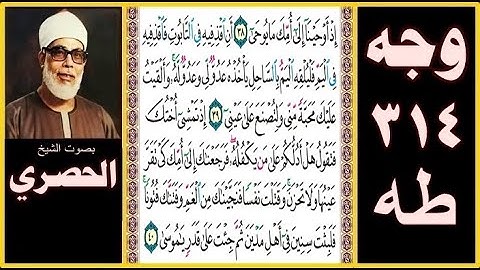 وجه
٣١٤
طه
إِذْ أَوْحَيْنَا إِلَىٰ أُمِّكَ مَا يُوحَىٰ ٣٨ أَنِ اقْذِفِيهِ فِي التَّابُوتِ فَاقْذِفِيهِ
فِي الْيَمِّ فَلْيُلْقِهِ الْيَمُّ بِالسَّاحِلِ يَأْخُذْهُ عَدُوٌّ لِّي وَعَدُوٌّ لَّهُ ۚ وَأَلْقَيْتُ
عَلَيْكَ مَحَبَّةً مِّنِّي وَلِتُصْنَعَ عَلَىٰ عَيْنِي ٣٩ إِذْ تَمْشِي أُخْتُكَ
فَتَقُولُ هَلْ أَدُلُّكُمْ عَلَىٰ مَن يَكْفُلُهُ ۖ فَرَجَعْنَاكَ إِلَىٰ أُمِّكَ كَيْ تَقَرَّ
عَيْنُهَا وَلَا تَحْزَنَ ۚ وَقَتَلْتَ نَفْسًا فَنَجَّيْنَاكَ مِنَ الْغَمِّ وَفَتَنَّاكَ فُتُونًا ۚ
فَلَبِثْتَ سِنِينَ فِي أَهْلِ مَدْيَنَ ثُمَّ جِئْتَ عَلَىٰ قَدَرٍ يَا مُوسَىٰ ٤٠
بصوت الشيخ
الحصري